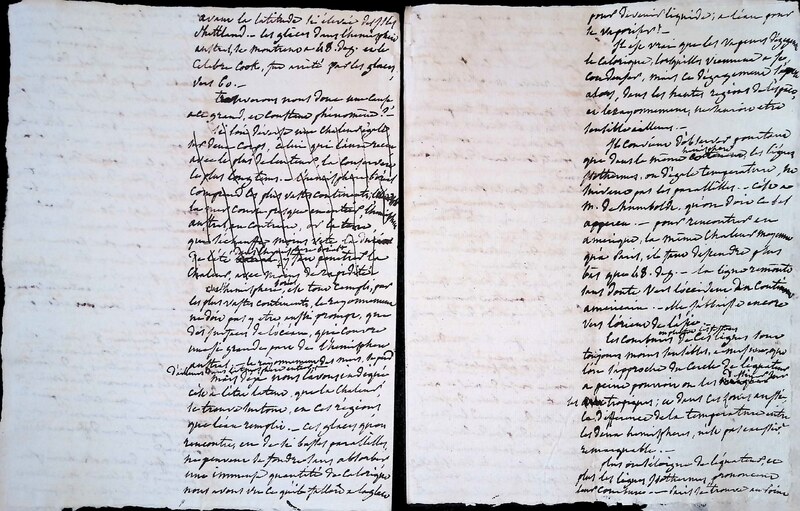 avant la latitude si élevée des Isles
Shetland. — les glaces dans l'hémisphère
austral, se montrent à 48 deg. et le
Célèbre Cook, fut arrêté par les glaces
vers 60. —
trouverons nous donc une cause
à ce grand, et constant phénomène? —
si l'on divise une chaleur égale
sur deux corps, celui qui l'aura reçue
avec le plus de lenteur, la conservera
le plus longtems. — l'hémisphère boréal
comprend les plus vastes continents,
austral au contraire, or la terre,
que moins vite
pénétrer la
chaleur, avec moins de rapidité
l'hémisphère, est tout rempli, par
les plus vastes continents, le rayonnement
ne doit pas y être aussi prompt, que
des surfaces de l'océan, qui couvre
une si grande partie de l'hémisphère
austral. — le rayonnement des mers,
mais nous l'avons
c'est à l'état latent, que la chaleur
se trouve surtout, en ces régions
que l'eau remplit. — Ces glaces qu'on
rencontre, en de si basses parallèles,
ne peuvent se fondre sans absorber
une immense quantité de calorique
nous avons vu ce qu'il faut à la glace
pour devenir liquide; à l'eau pour
se vaporiser! —
Il est vrai que les vapeurs dégagent
le calorique, lorsqu'elles viennent à se
condenser, mais ce dégagement s'opère
alors, dans les hautes régions de l'espace,
et le rayonnement, ne saurait être
sensible ailleurs. —
Il convient d'observer pourtant
que dans le même hémisphère, les lignes
Isothermes, ou d'égale température, ne
suivent pas les parallèles. — C'est à
M. de humboldt, qu'on doit ce bel
apperçu. — pour rencontrer en
amérique, la même chaleur moyenne
qu'à Paris, il faut descendre plus
bas que 48. deg. — la ligne remonte
sans doute vers l'occident du continent
américain. — elle s'abaisse encore
vers l'orient de l'asie.
les courbures de ces lignes sont
toujours moins sensibles, à mesure, que
l'on s'approche du Cercle de l'équateur
à peine pourroit on les
les tropiques; et dans ces zones aussi
la différence de la température entre
les deux hémisphères, n'est pas
remarquable. —
plus on s'éloigne de l'équateur, et
plus les lignes Isothermes, prononcent
leur courbure. — Paris se trouve